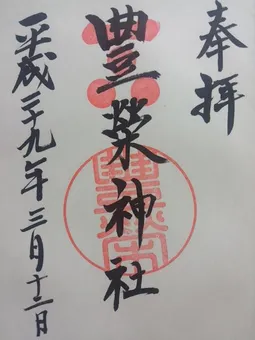 奉拝
豊榮神社
平成二十九年三月十二日